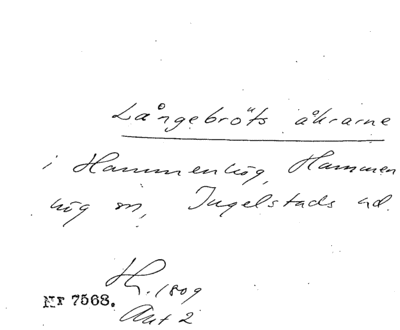 Långebröts åkrarne
i Hammenhög, Hammen
hög sn, Ingelstads hd.
H. 1809
Nr 7568.
Akt 2